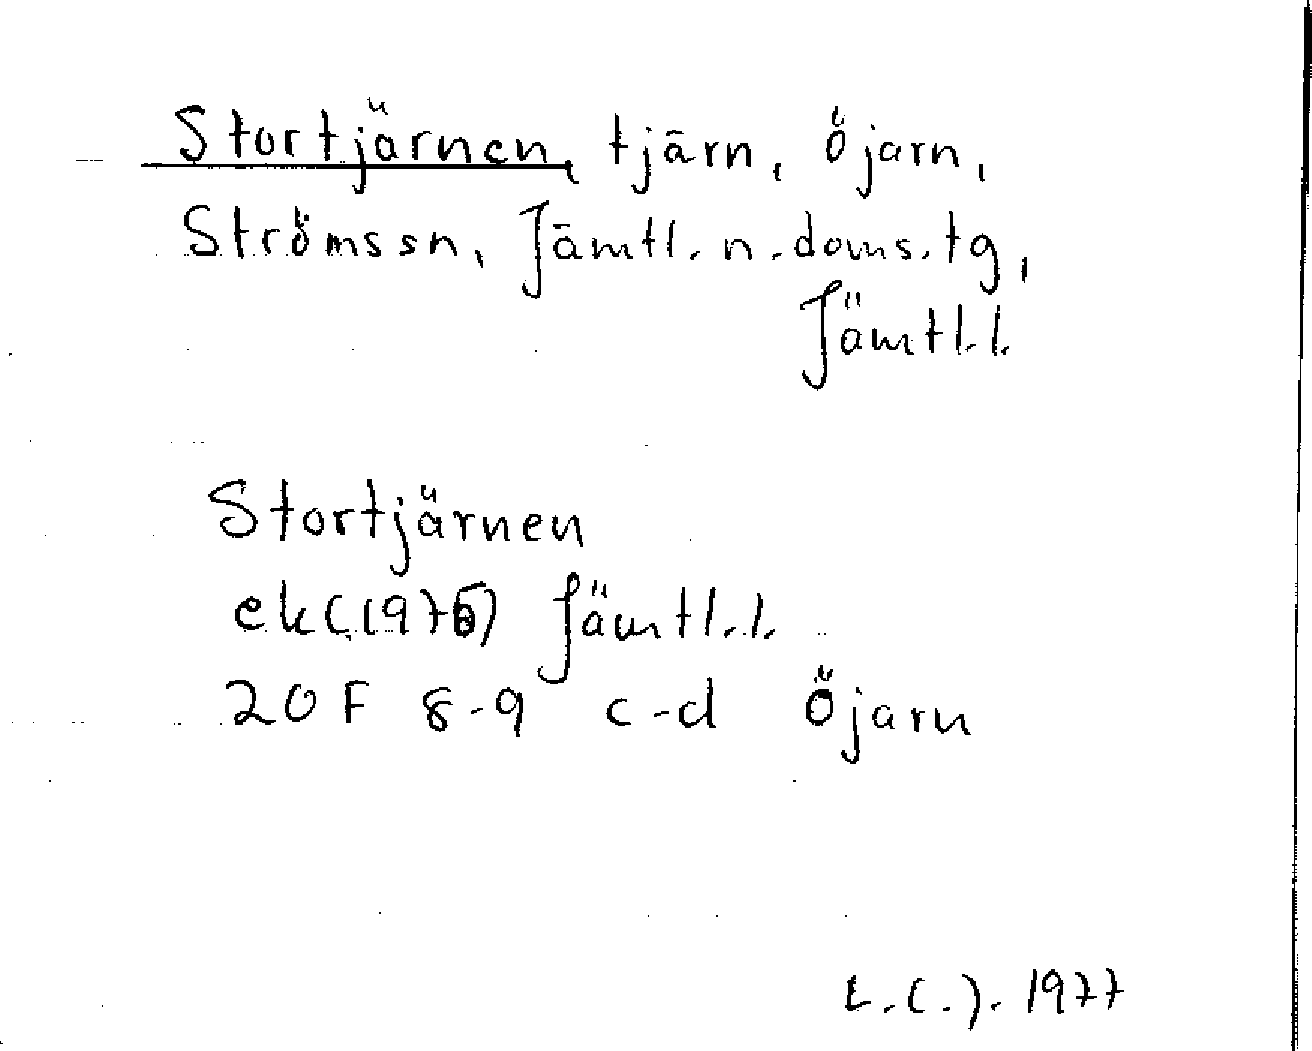 Stortjärnen, tjärn, Öjarn,
Strömssn, Jämtl. n. doms. tg,
Jämtl. l.
Stortjärnen
ek (1976) Jämtl. l.
20 F 8-9 c-d Öjarn
1977